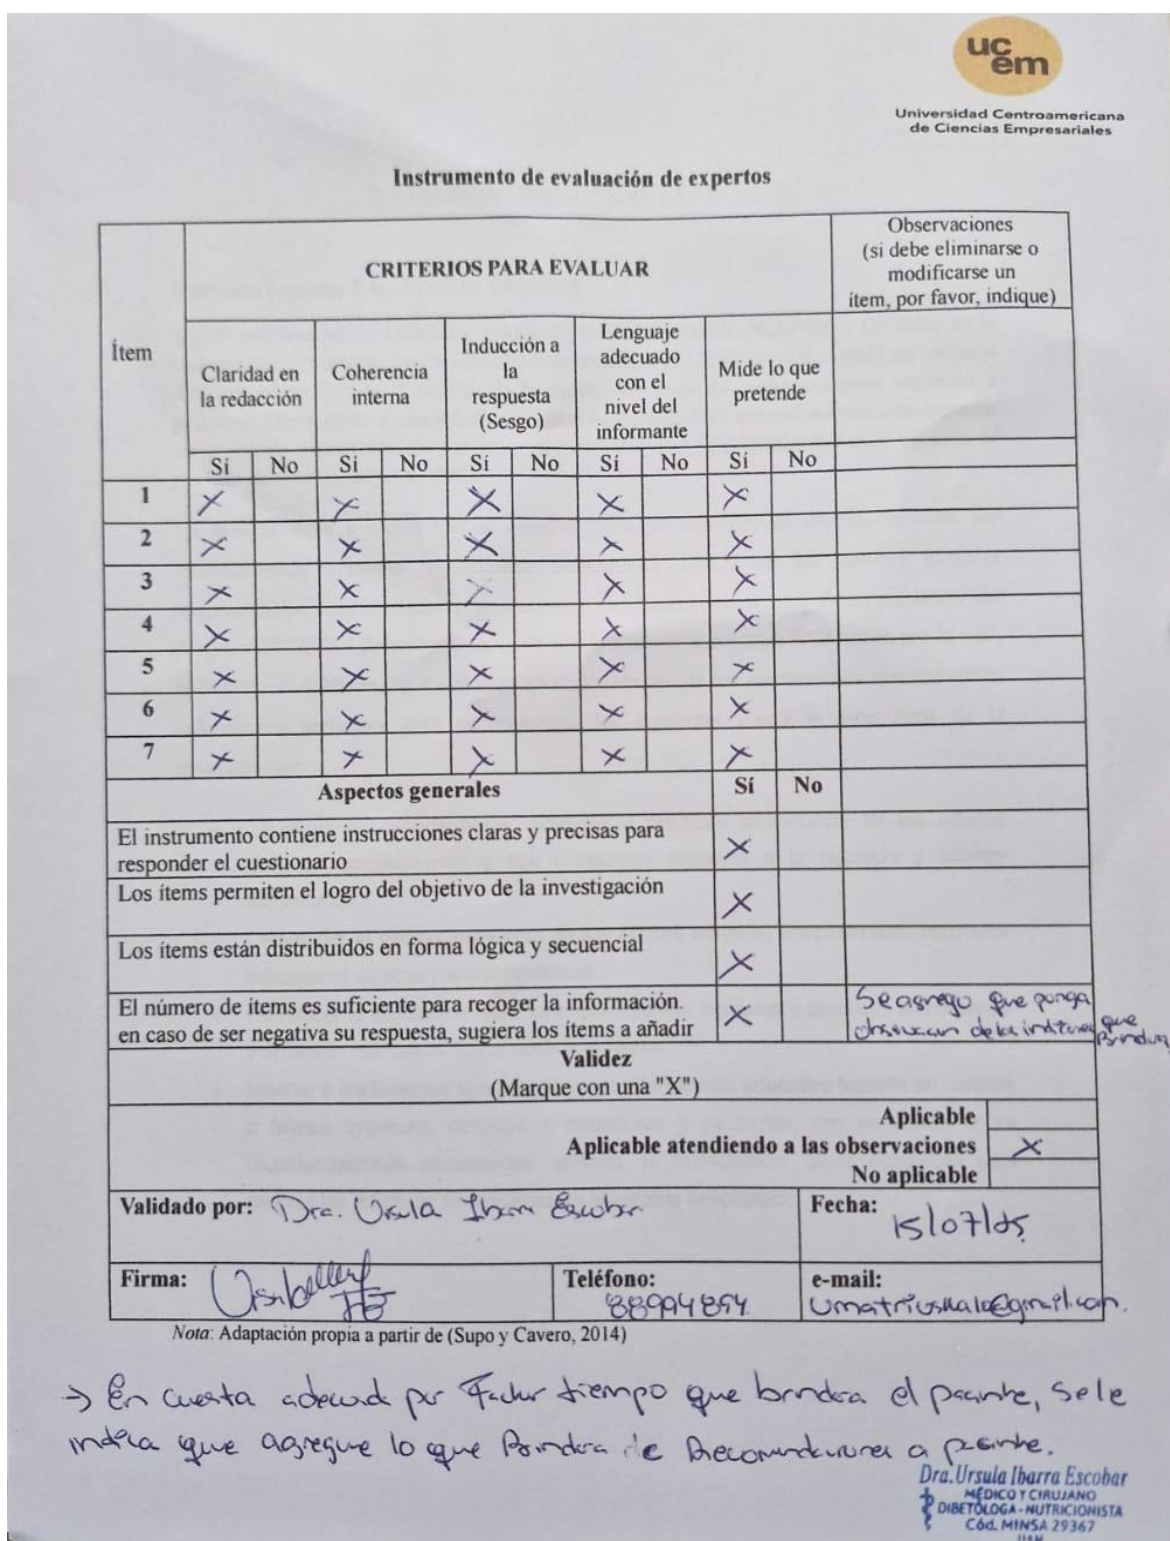 uc
em
Universidad Centroamericana
de Ciencias Empresariales
Instrumento de evaluación de expertos
Ítem
CRITERIOS PARA EVALUAR
Observaciones
(si debe eliminarse o
modificarse un
ítem, por favor, indique)
Claridad en
la redacción
Coherencia
interna
Inducción a
la
respuesta
(Sesgo)
Lenguaje
adecuado
con el
nivel del
informante
Mide lo que
pretende
Sí No Sí No Sí No Sí No Sí No
1 X X X X X
2 X X X X X
3 X X X X X
4 X X X X X
5 X X X X X
6 X X X X X
7 X X X X X
Aspectos generales Sí No
El instrumento contiene instrucciones claras y precisas para
responder el cuestionario X
Los ítems permiten el logro del objetivo de la investigación X
Los ítems están distribuidos en forma lógica y secuencial X
El número de ítems es suficiente para recoger la información.
en caso de ser negativa su respuesta, sugiera los ítems a añadir X
Se agrego que ponga
que
Validez
(Marque con una "X")
Aplicable
Aplicable atendiendo a las observaciones X
No aplicable
Validado por: Dra. Ursula Ibarra Escobar
Fecha: 15/07/25
Firma:
Teléfono: 88994894
e-mail:
Nota: Adaptación propia a partir de (Supo y Cavero, 2014)
→ En cuesta adecuada por Factor tiempo que brindra el paciente, se le
indica que agregue lo que Brindra de Recomendaciones a paciente.
Dra. Ursula Ibarra Escobar
MÉDICO Y CIRUJANO
DIBETÓLOGA - NUTRICIONISTA
Cód. MINSA 29367
UAM